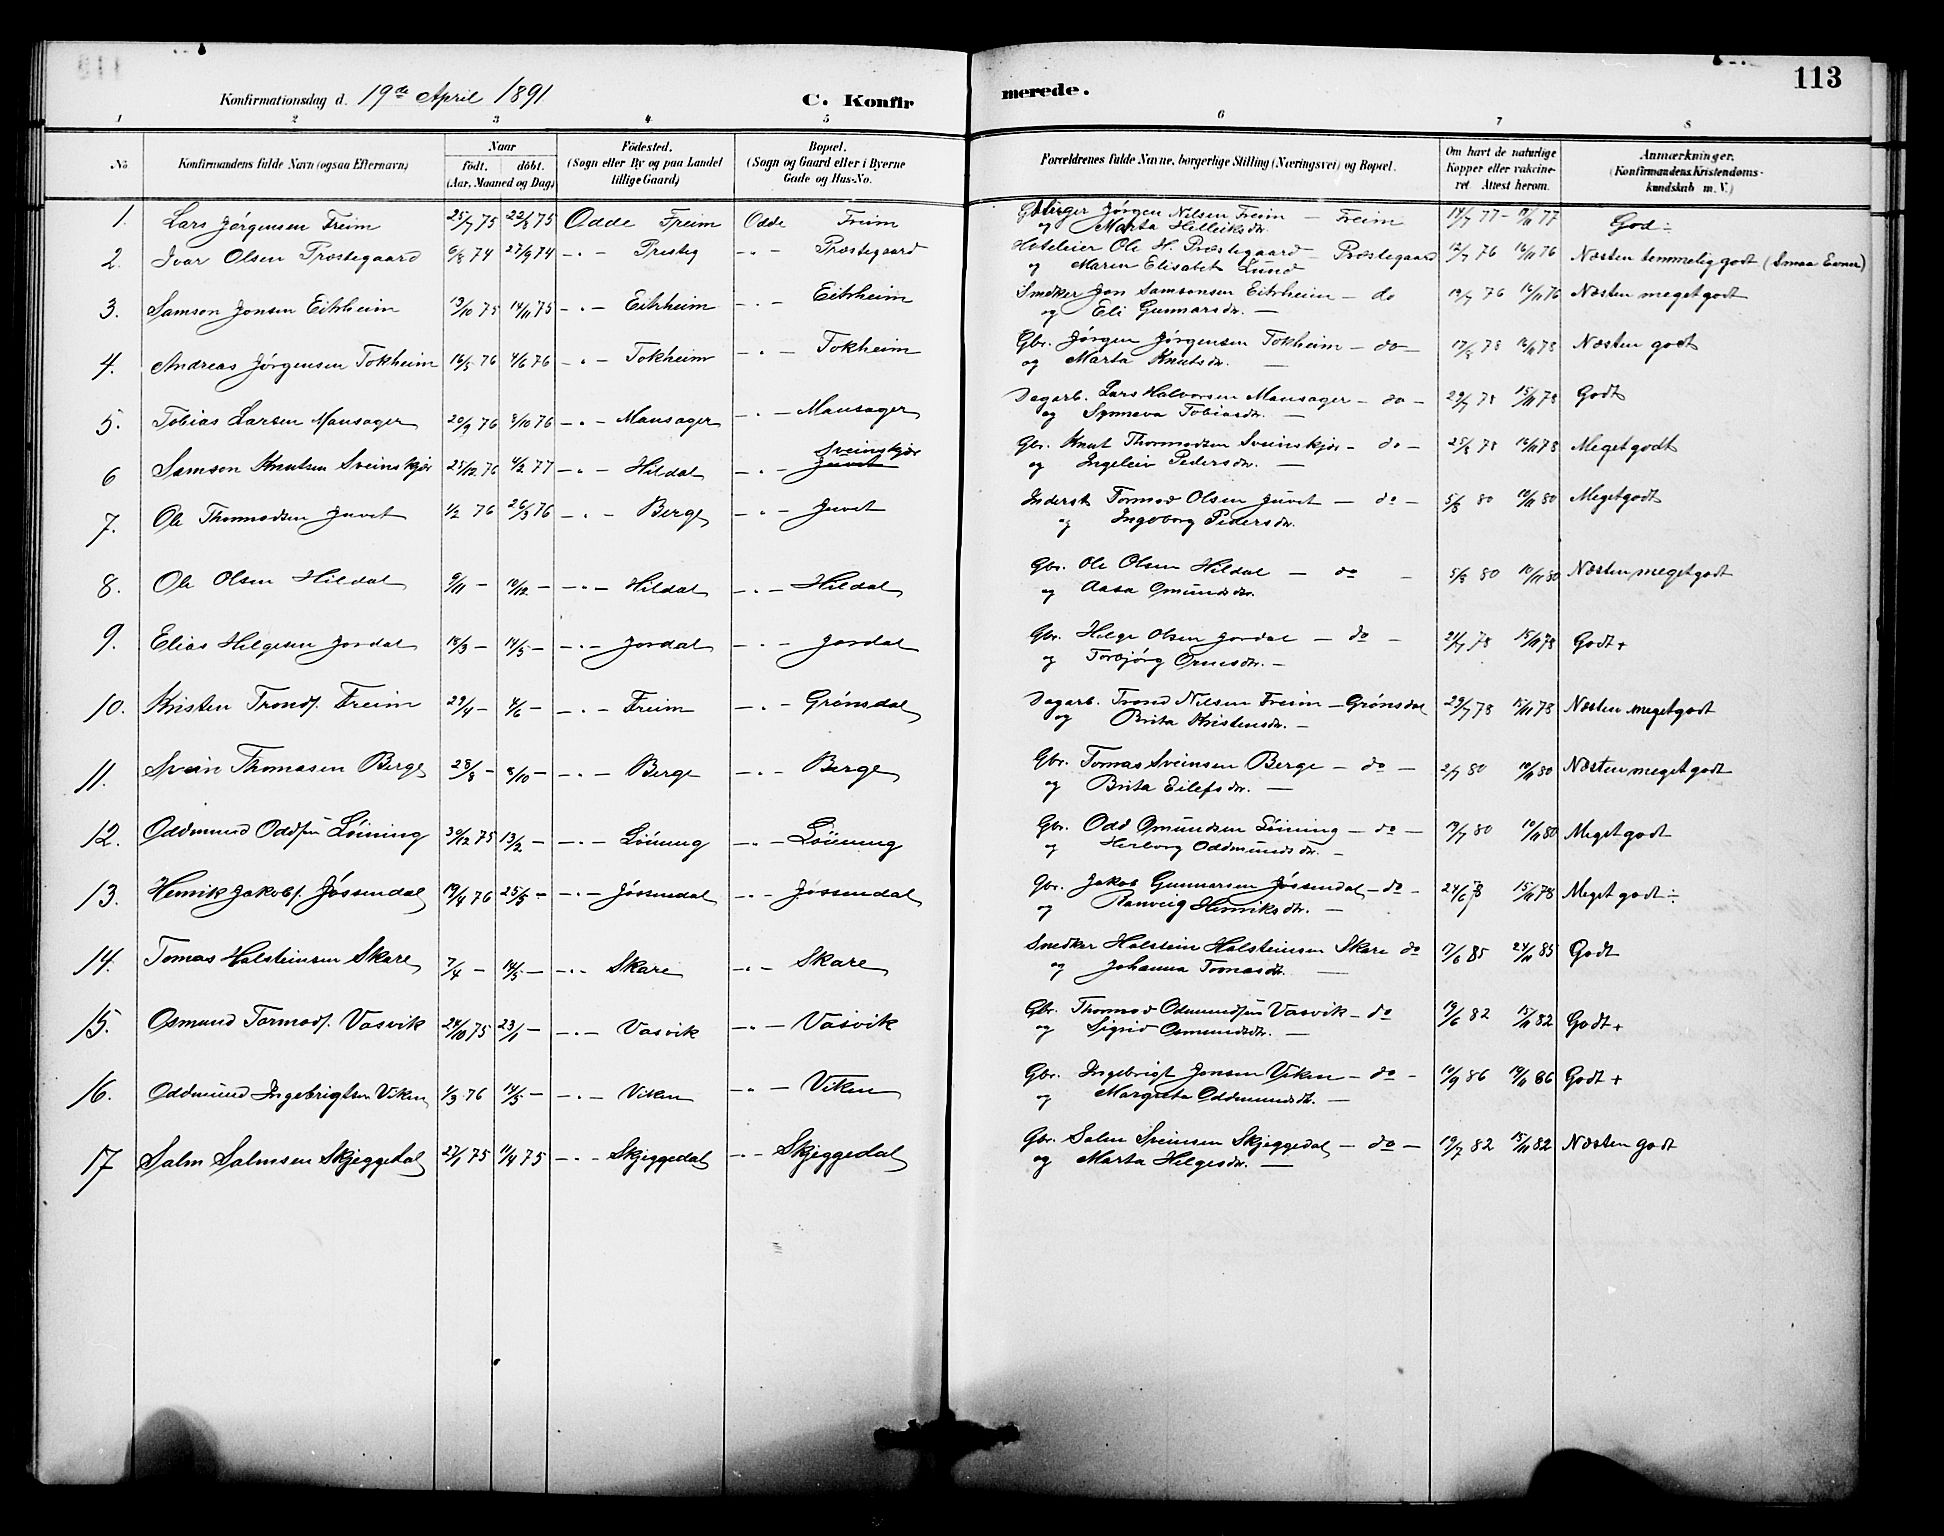 Konfirmationsdag d. 19de April 1891 C. Konfir merede. 113
1 2 3 4 5 6 7 8
No Konfirmandens fulde Navn (ogsaa Efternavn) Naar født. døbt. (Aar, Maaned og Dag) Fødested. (Sogn eller By og paa Landet tillige Gaard) Bopæl. (Sogn og Gaard eller i Byerne Gade og Hus-No. Forældrenes fulde Navne, borgerlige Stilling (Næringsvei) og Bopæl. Om havt de naturlige Kopper eller vakcineret. Attest herom. Anmærkninger. (Konfirmandens Kristendomskundskab m. V.)
1. Lars Jørgensen Freim 25/7 75 22/8 75 Odde Freim Odde Freim Jørgen Nilsen Freim – Freim 14/7 77 – 12/11 77 God ÷
og Marta Helleiksdr.
2. Ivar Olsen Præstegaard 6/8 74 27/9 74 – " – Prestég – " – Præstegaard Hoteleier Ole H. Præstegaard – Præstegaard 12/7 76 12/11 76 Næsten temmelig godt (Smaa Evner)
og Maren Elisabet Lund
3. Samson Jonsen Eitrheim 19/10 75 14/11 75 – " – Eitrheim – " – Eitrheim Snedker Jon Samsonsen Eitrheim – do 12/7 76 12/11 76 Næsten meget godt
og Eli Gunnarsdr. –
4. Andreas Jørgensen Tokheim 16/5 76 4/6 76 – " – Tokheim – " – Tokheim Gbr. Jørgen Jørgensen Tokheim – do – 17/8 78 12/11 78 Næsten godt
og Marta Knutsdr. –
5. Tobias Larsen Mansager 20/9 76 8/10 76 – " – Mansager – " – Mansager Dagarb. Lars Halvorsen Mansager – do – 29/7 78 15/11 78 Godt
og Synneva Tobiasdr. –
6 Samson Knutsen Sveinskjør 25/12 76 4/2 77 – " – Hildal – " – Juvet Sveinskjør Gbr. Knut Thormodsen Sveinskjør – do – 25/8 78 12/11 78 Meget godt
og Ingeleiv Pedersdr. –
7. Ole Thormodsen Juvet 1/2 76 26/3 76 – " – Berge – " – Juvet Inderst Tormod Olsen Juvet – do – 5/8 80 10/11 80 Meget godt
og Ingeborg Pedersdr.
8. Ole Olsen Hildal 9/11 – 10/12 – – " – Hildal – " – Hildal Gbr. Ole Olsen Hildal – do – 5/8 80 10/11 80 Næsten meget godt
og Aasa Omundsdr.
9. Elias Helgesen Jordal 18/3 – 14/5 – – " – Jordal – " – Jordal Gbr. Helge Olsen Jordal – do – 21/7 78 15/11 78 Godt +
og Torbjørg Ormsdr. –
10. Kristen Tronds. Freim 29/4 – 4/6 – – " – Freim – " – Grønsdal Dagarb. Trond Nilsen Freim – Grønsdal 29/7 78 15/11 78 Næsten meget godt
og Brita Kristensdr. –
11. Svein Thomasen Berge 28/8 – 8/10 – – " – Berge – " – Berge Gbr. Tomas Sveinsen Berge – do – 2/7 80 10/11 80 Næsten meget godt
og Brita Eilefsdr. –
12. Oddmund Oddsen Løining 30/12 75 13/2 – – " – Løining – " – Løining Gbr. Odd Omundsen Løining – do – 19/7 80 10/11 80 Meget godt
og Herborg Oddmundsdr. –
13. Henrik Jakobs. Jøssendal 19/4 76 25/5 – – " – Jøssendal – " – Jøssendal Gbr. Jakob Gunnarsen Jøssendal – do – 24/6 78 15/11 78 Meget godt ÷
og Ranveig Henriksdr. –
14. Tomas Holsteinsen Skare 7/4 – 14/5 – – " – Skare – " – Skare Snedker Holstein Holsteinsen Skare do 17/6 85 24/11 85 Godt
og Johanna Tomasdr. –
15. Osmund Tormods. Vasvik 24/10 75 23/1 – – " – Vasvik – " – Vasvik Gbr. Thormod Odmundsen Vasvik – do 19/6 82 15/11 82 Godt +
og Sigrid Osmundsdr. –
16. Oddmund Ingebrigtsen Viken 1/3 76 14/5 – – " – Viken – " – Viken Gbr. Ingebrigt Jonsen Viken – do – 10/9 86 19/11 86 Godt +
og Margreta Oddmundsdr. –
17 Salm Salmsen Skjeggedal 27/1 75 11/4 75 – " – Skjeggedal – " – Skjeggedal Gbr. Salm Sveinsen Skjeggedal – do – 19/7 82 15/11 82 Næsten godt
og Marta Helgesdr. –